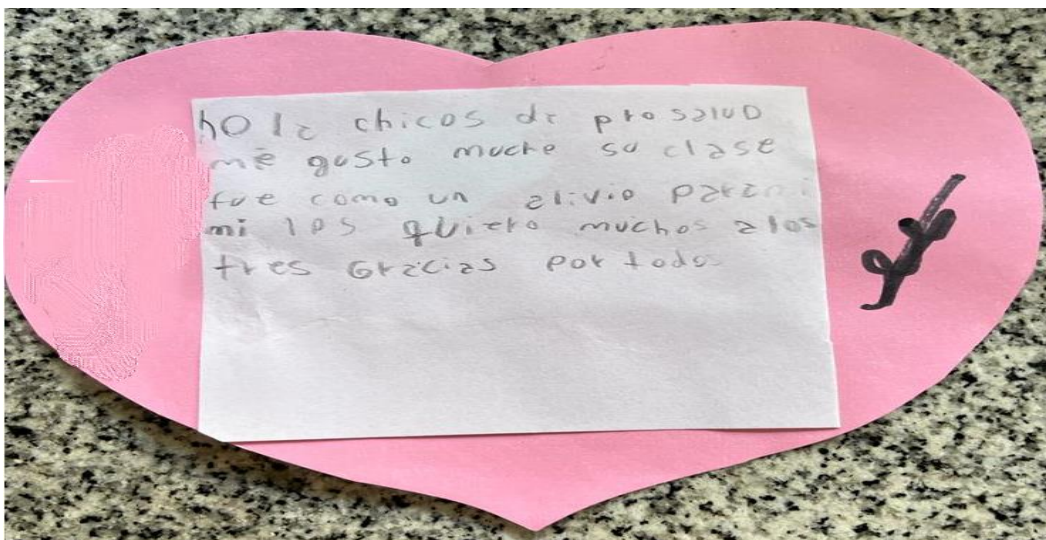 hola chicos de prosalud
me gusto mucho su clase
fue como un alivio para mi
mi los quiero muchos a los
tres Gracias por todo